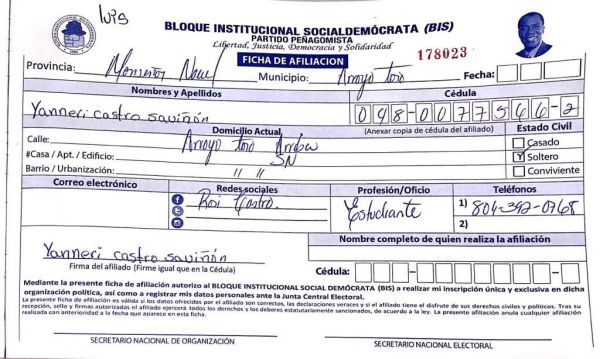 Luis
BLOQUE INSTITUCIONAL SOCIALDEMÓCRATA (BIS)
PARTIDO PEÑAGOMISTA
Libertad, Justicia, Democracia y Solidaridad
178023
FICHA DE AFILIACION
Provincia: Monseñor Nouel Municipio: Arroyo toro Fecha:
Nombres y Apellidos Cédula
Yanneri castro saviñón 048-0077546-2
Domicilio Actual (Anexar copia de cédula del afiliado) Estado Civil
Calle: Arroyo toro Arriba Casado
#Casa / Apt. / Edificio: SN Y Soltero
Barrio / Urbanización: " " Conviviente
Correo electrónico Redes sociales Profesión/Oficio Teléfonos
Rosi Castro Estudiante 1) 804-392-0768
2)
Nombre completo de quien realiza la afiliación
Yanneri castro saviñón
Firma del afiliado (Firme igual que en la Cédula) Cédula:
Mediante la presente ficha de afiliación autorizo al BLOQUE INSTITUCIONAL SOCIAL DEMÓCRATA (BIS) a realizar mi inscripción única y exclusiva en dicha
organización política, así como a registrar mis datos personales ante la Junta Central Electoral.
La presente ficha de afiliación es válida si los datos ofrecidos por el afiliado son correctos, las declaraciones veraces y si el afiliado tiene el disfrute de sus derechos civiles y políticos. Tras su
recepción, sello y firmas autorizadas el afiliado ejercerá todos los derechos y los deberes estatutariamente sancionados, de acuerdo a la ley. La presente afiliación anula cualquier afiliación
realizada con anterioridad a la fecha que aparece en esta ficha.
SECRETARIO NACIONAL DE ORGANIZACIÓN SECRETARIO NACIONAL ELECTORAL